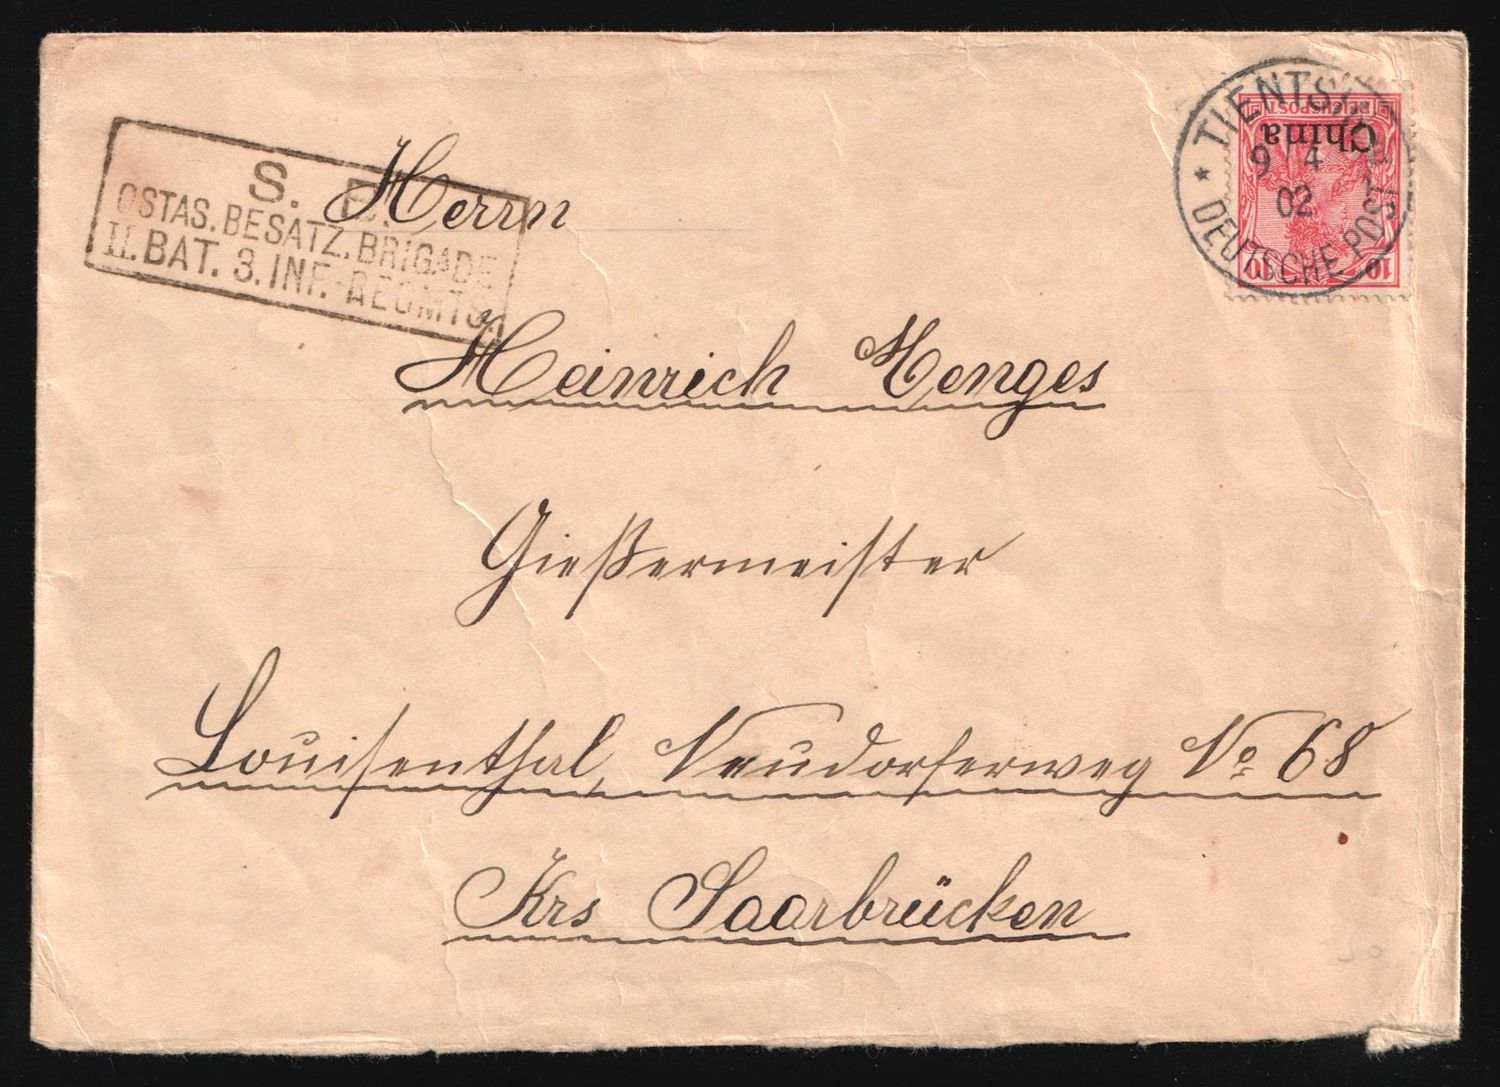 S. B.
OSTAS. BESATZ. BRIGADE
II. BAT. 3. INF.-REGMTS.
TIENTSIN
DEUTSCHE POST
9 4
02
REICHSPOST
China
10 10
Herrn
Heinrich Menges
Gießermeister
Louisenthal, Neudorferweg No 68
Krs Saarbrücken